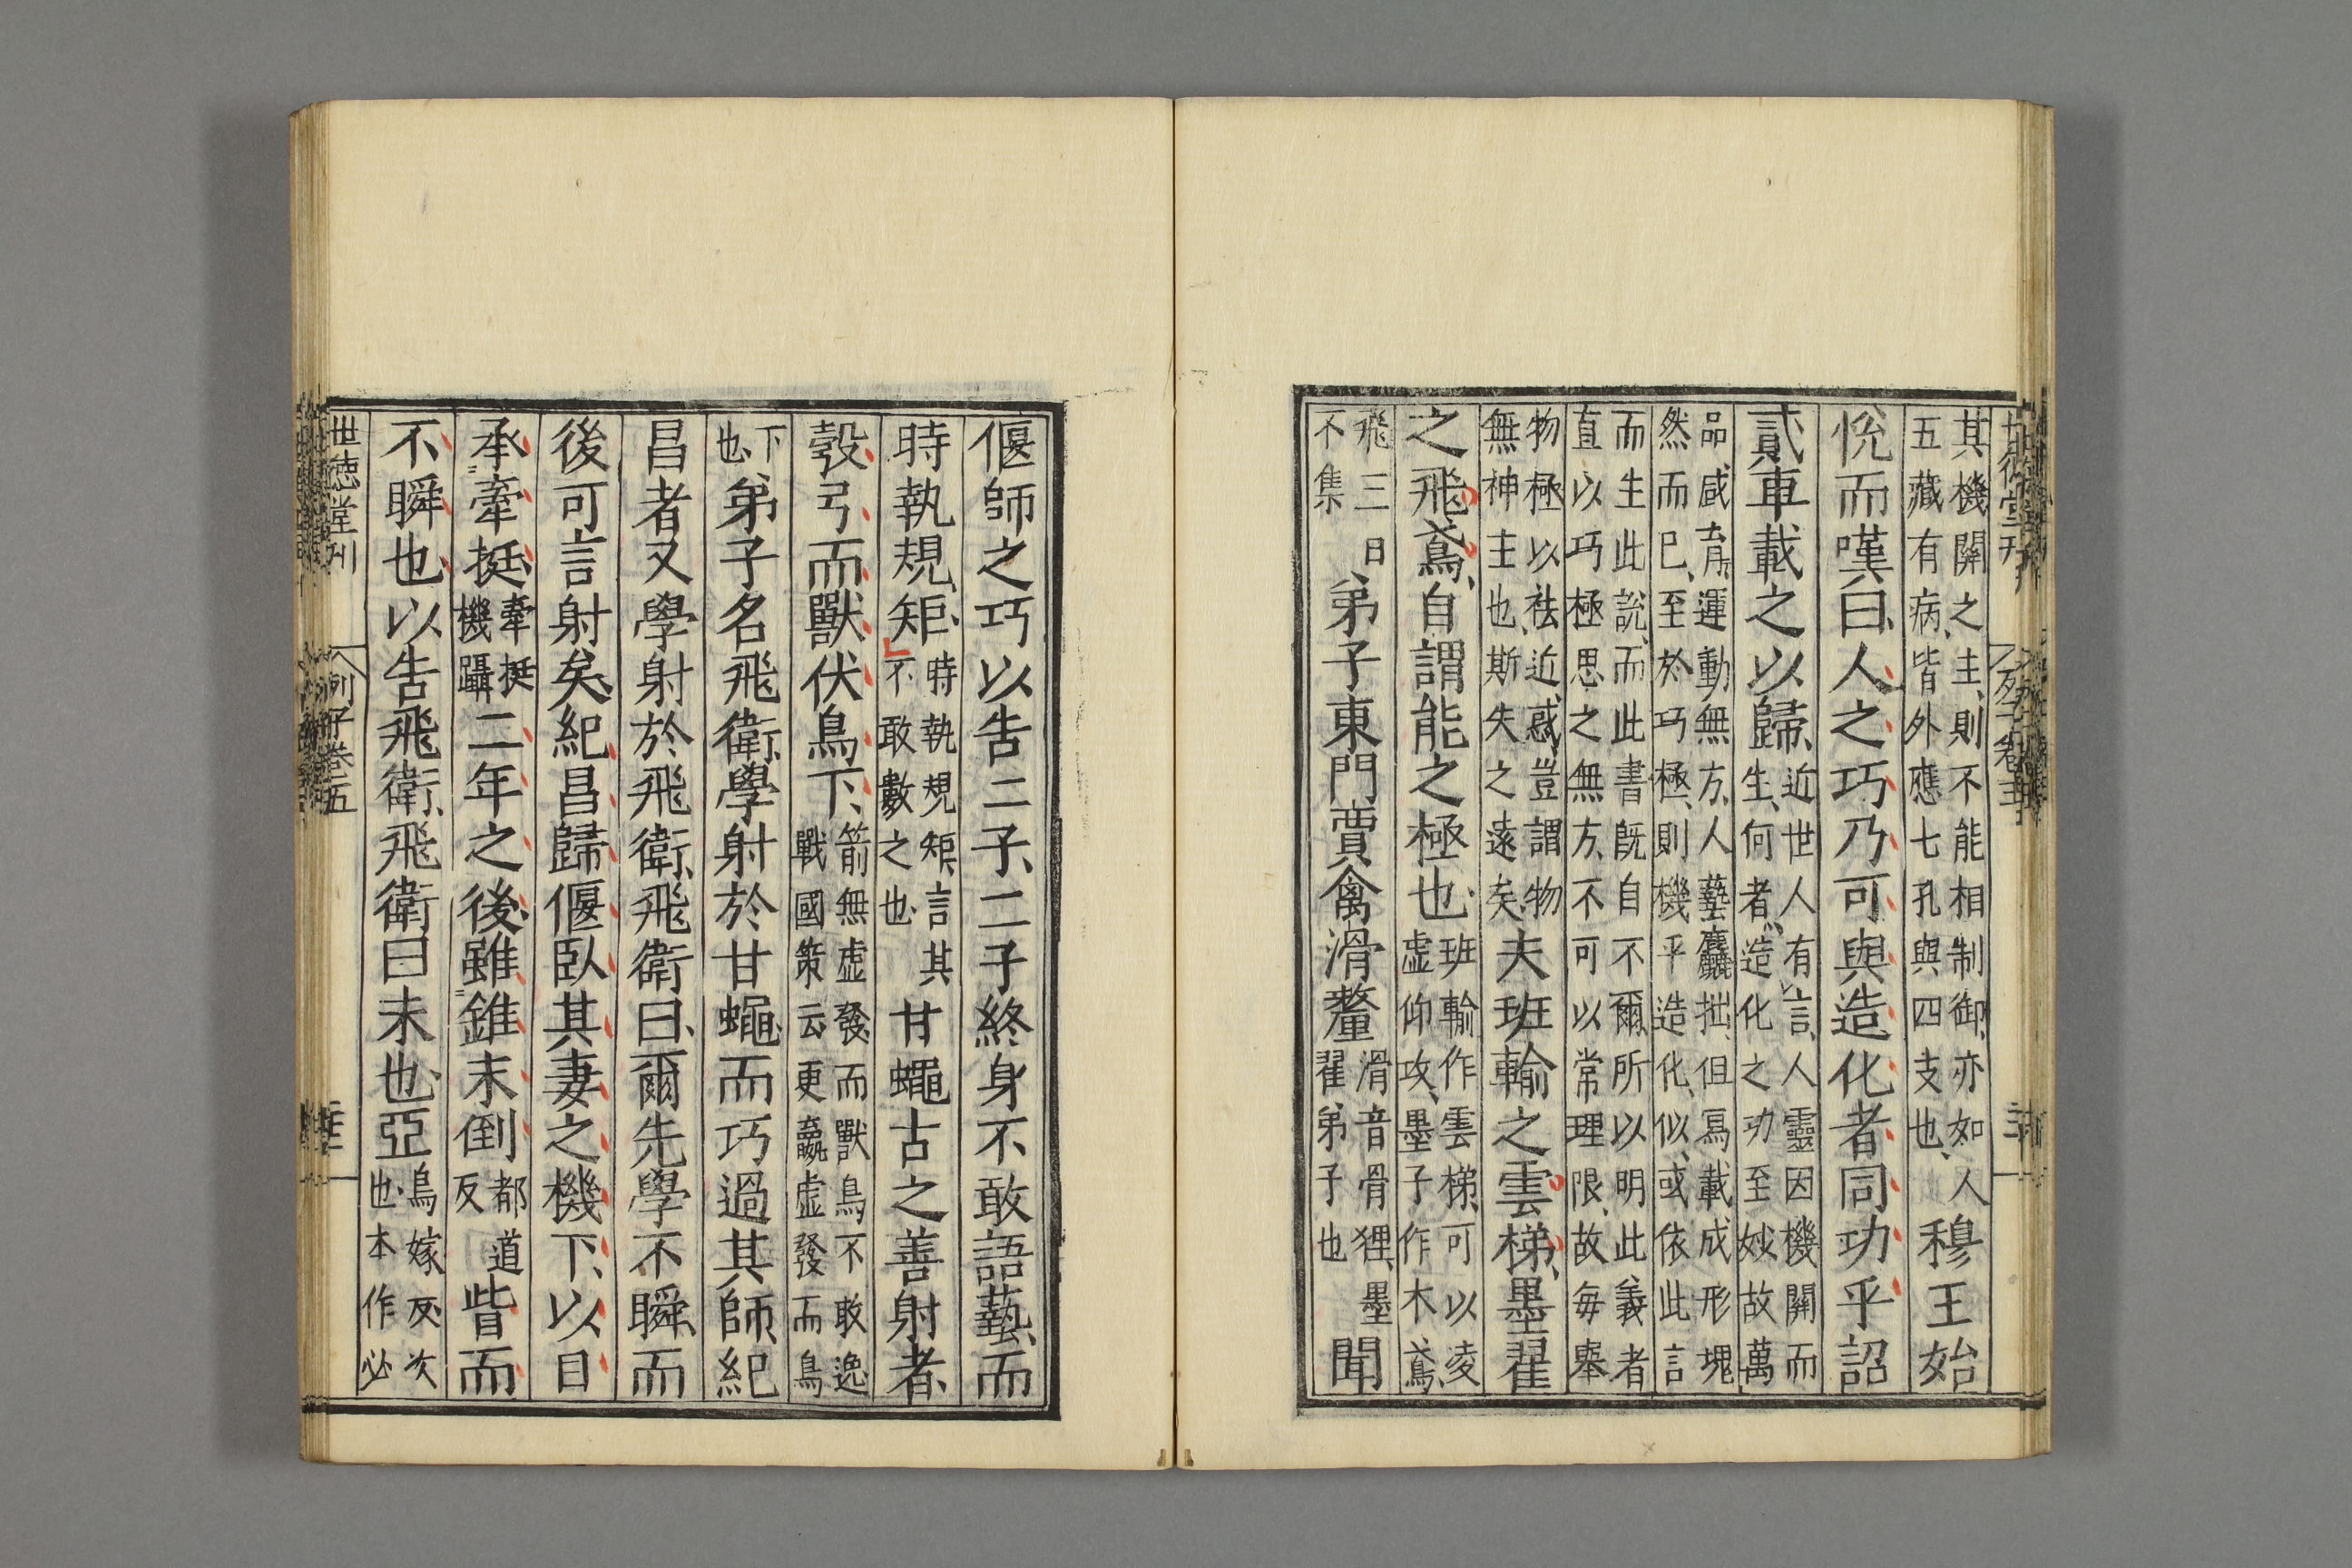 世德堂刊 列子卷五
其機關之主則不能相制御亦如人五藏有病皆外應七孔與四支也穆王始
悅而嘆曰人之巧乃可與造化者同功乎詔
貳車載之以歸近世人有言人靈因機關而生何者造化之功至妙故萬
品咸育運動無方人藝麤拙但寫載成形塊然而已至於巧極則機乎造化似或依此言
而生此說而此書既自不爾所以明此義者直以巧極思之無方不可以常理限故每舉
物極以祛近惑豈謂物無神主也斯失之遠矣夫班輸之雲梯墨翟
之飛鳶自謂能之極也班輸作雲梯可以凌虛仰攻墨子作木鳶
飛三日不集弟子東門賈禽滑釐滑音骨狸墨翟弟子也聞
偃師之巧以告二子二子終身不敢語藝而
時執規矩時執規矩言其不敢數之也甘蠅古之善射者
彀弓而獸伏鳥下箭無虛發而獸鳥不敢逸戰國策云更羸虛發而鳥
下也弟子名飛衛學射於甘蠅而巧過其師紀
昌者又學射於飛衛飛衛曰爾先學不瞬而
後可言射矣紀昌歸偃臥其妻之機下以目
承牽挺牽挺機躡二年之後雖錐末倒都道反眥而
不瞬也以告飛衛飛衛曰未也亞烏嫁反次也本作必
世德堂刊 列子卷五